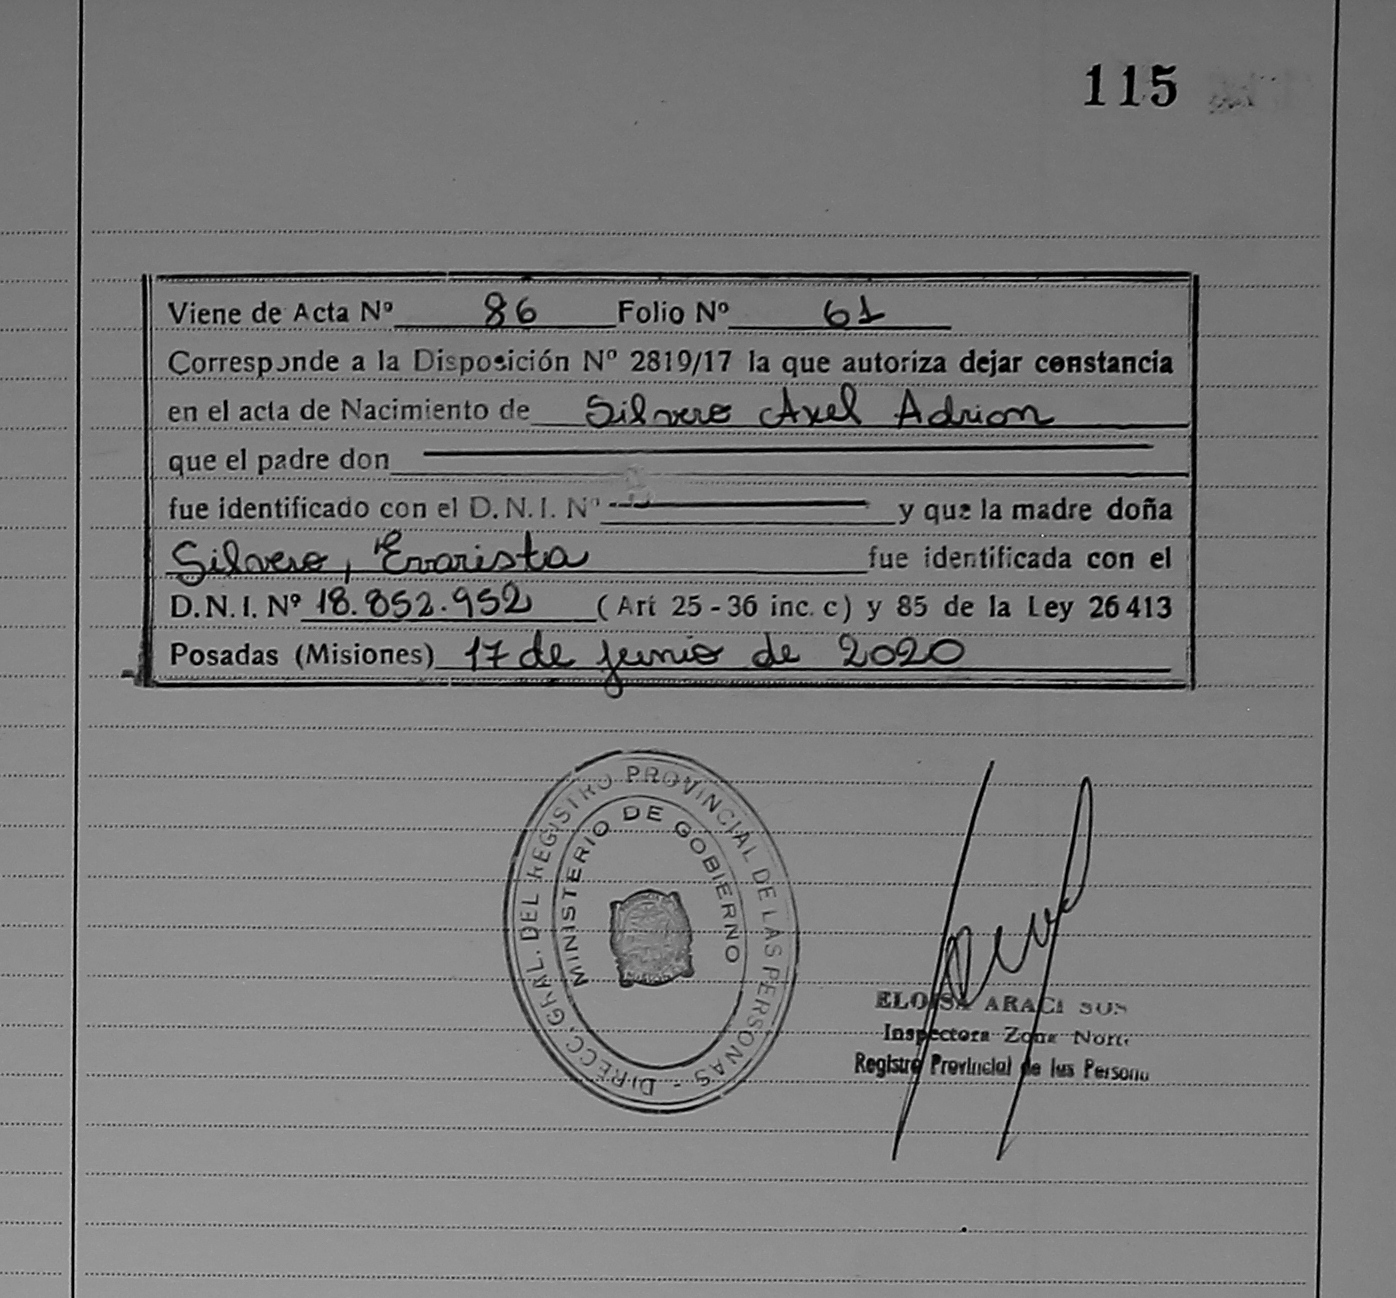 115
Viene de Acta Nº 86 Folio Nº 61
Corresponde a la Disposición Nº 2819/17 la que autoriza dejar constancia
en el acta de Nacimiento de Silvero Axel Adrian
que el padre don
fue identificado con el D.N.I. Nº y que la madre doña
Silvero, Evarista fue identificada con el
D.N.I. Nº 18.852.952 (Art 25 - 36 inc. c) y 85 de la Ley 26413
Posadas (Misiones) 17 de junio de 2020
DIRECC. GRAL. DEL REGISTRO PROVINCIAL DE LAS PERSONAS -
MINISTERIO DE GOBIERNO
ELOISA ARACI
Inspectora Zona Norte
Registro Provincial de las Persona